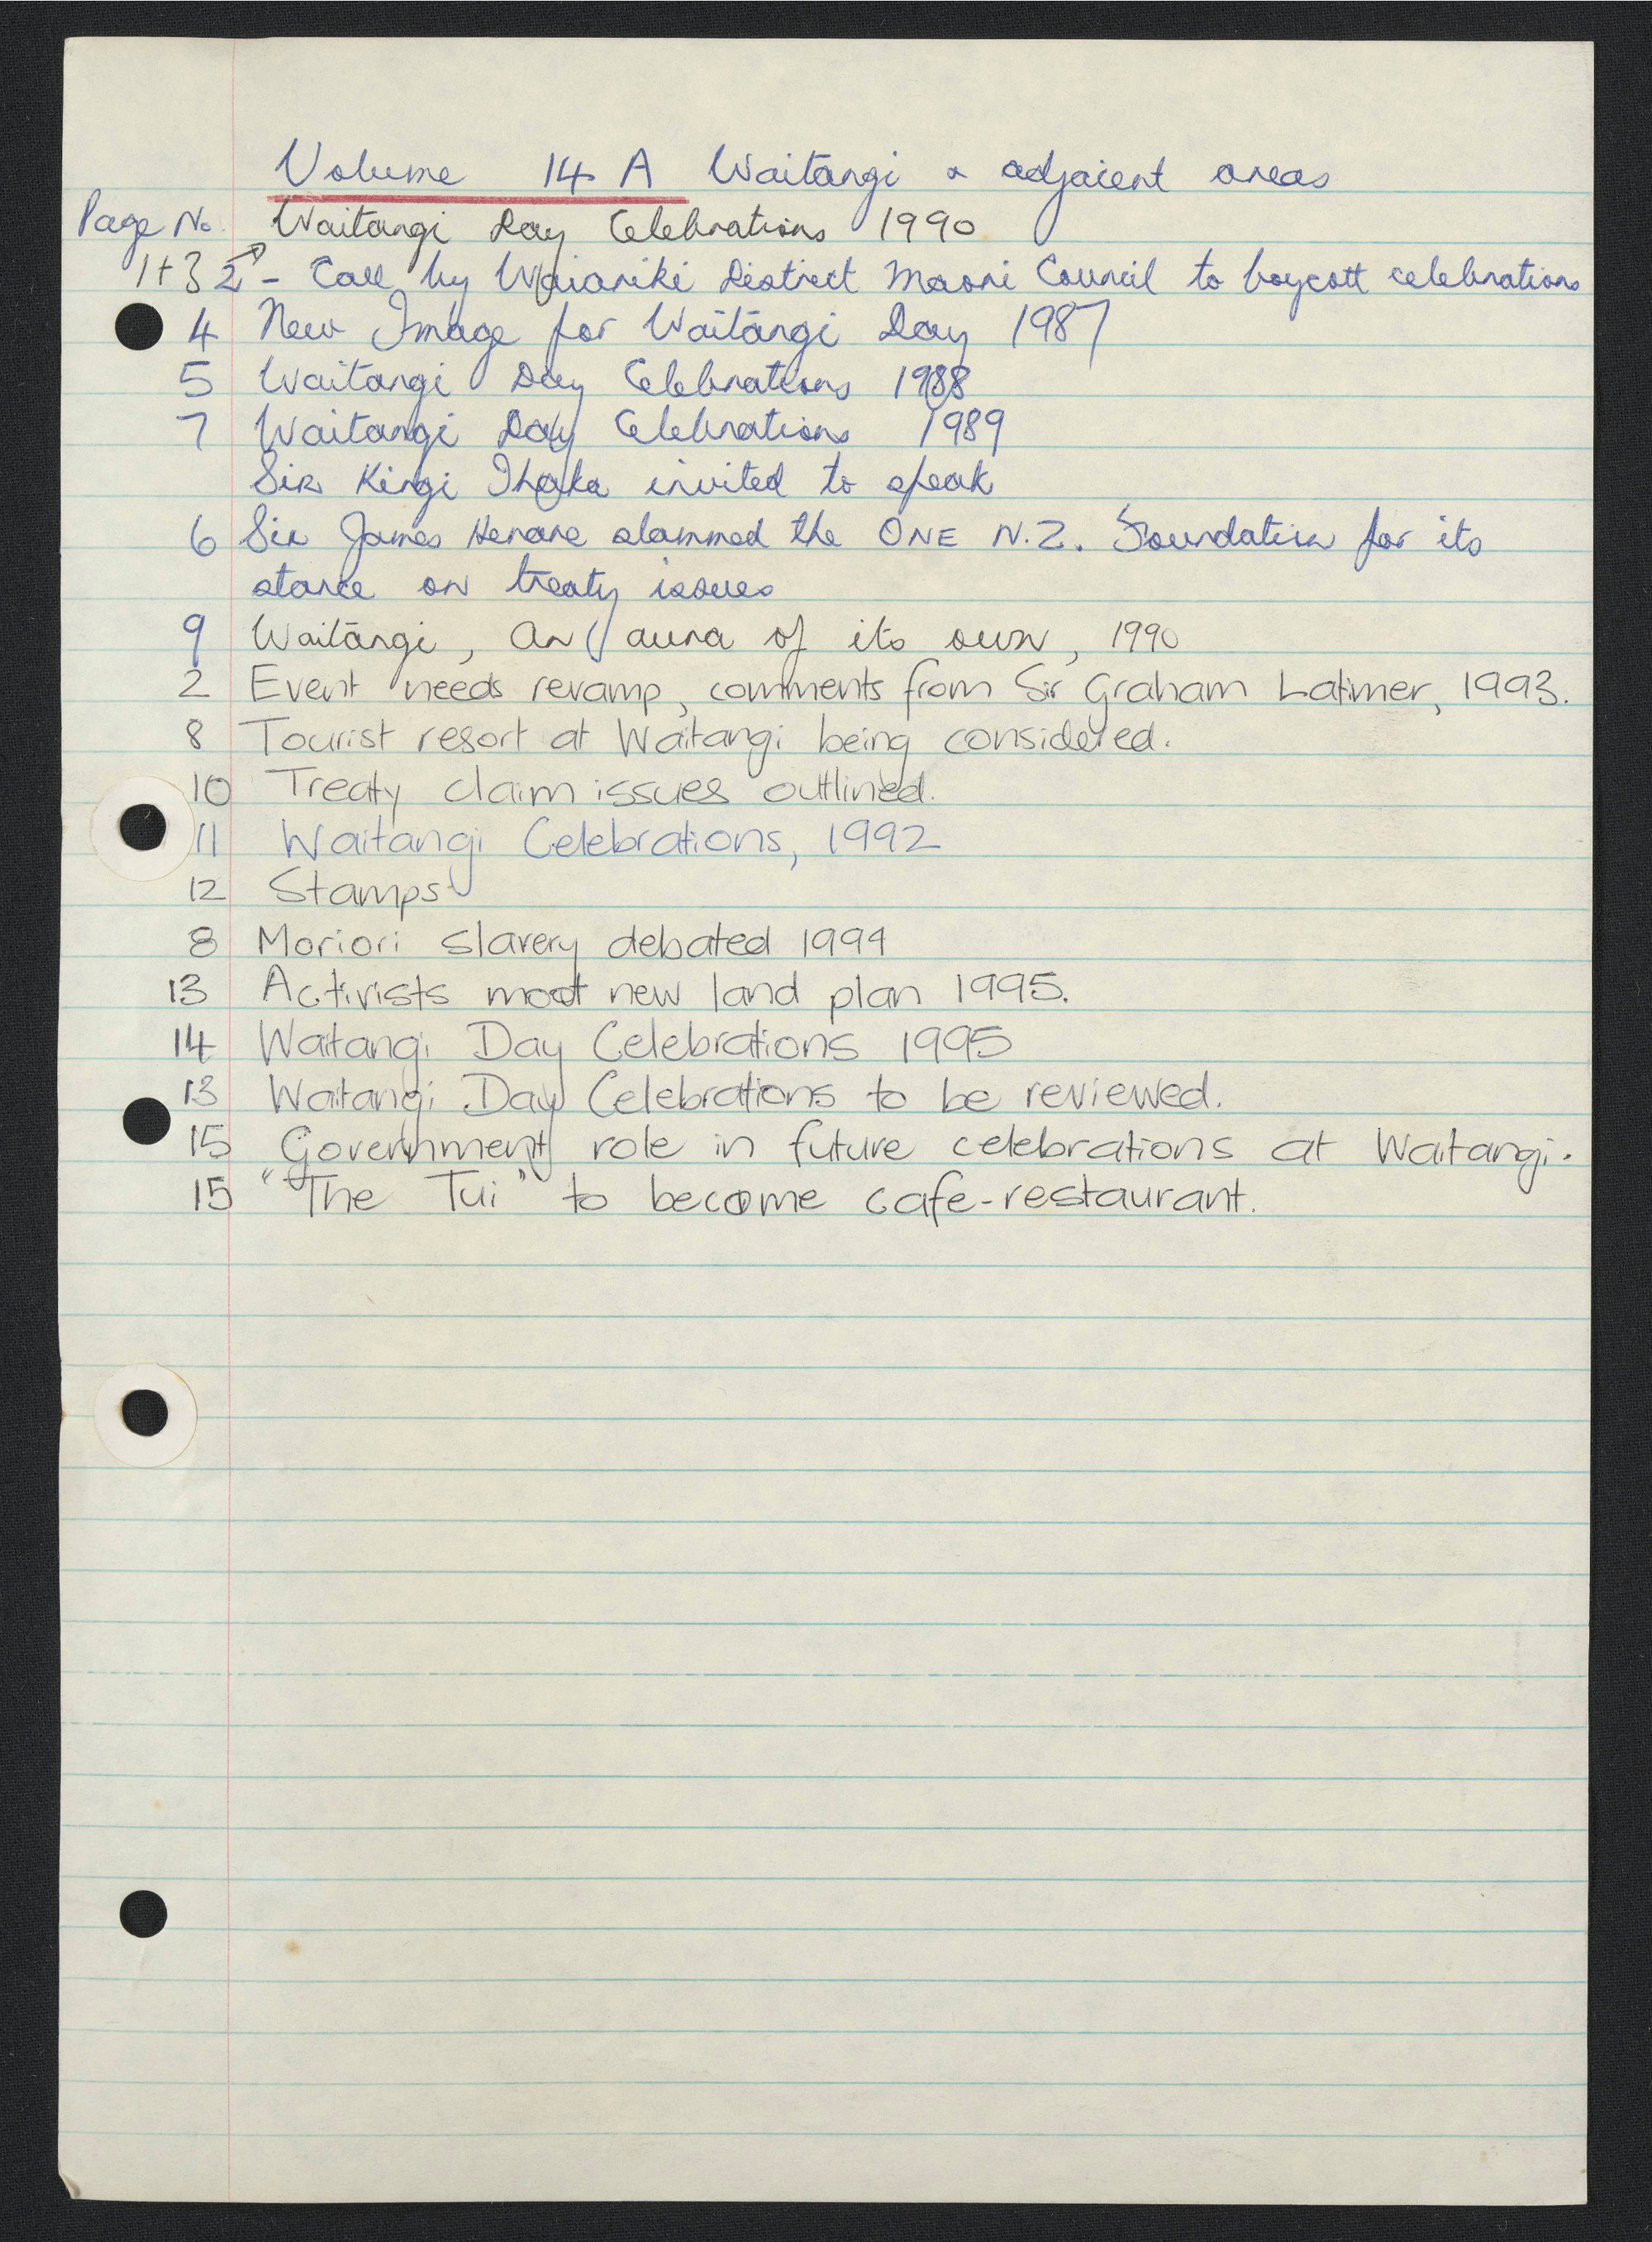 Volume 14 A Waitāngi & adjacent areas
Page No. Waitangi Day Celebrations 1990
1+3 2 - Call by Waiariki District Maori Council to boycott celebrations
4 New Image for Waitāngi Day 1987
5 Waitangi Day Celebrations 1988
7 Waitangi Day Celebrations 1989
Sir Kingi Ihaka invited to speak
6 Sir James Henare slammed the ONE N.Z. Foundation for its
stance on treaty issues
9 Waitāngi, An aura of its own, 1990
2 Event needs revamp, comments from Sir Graham Latimer, 1993.
8 Tourist resort at Waitangi being considered.
10 Treaty claim issues outlined.
11 Waitangi Celebrations, 1992
12 Stamps
8 Moriori slavery debated 1994
13 Activists moot new land plan 1995.
14 Waitangi Day Celebrations 1995
13 Waitangi Day Celebrations to be reviewed.
15 Government role in future celebrations at Waitangi.
15 "The Tui" to become cafe-restaurant.